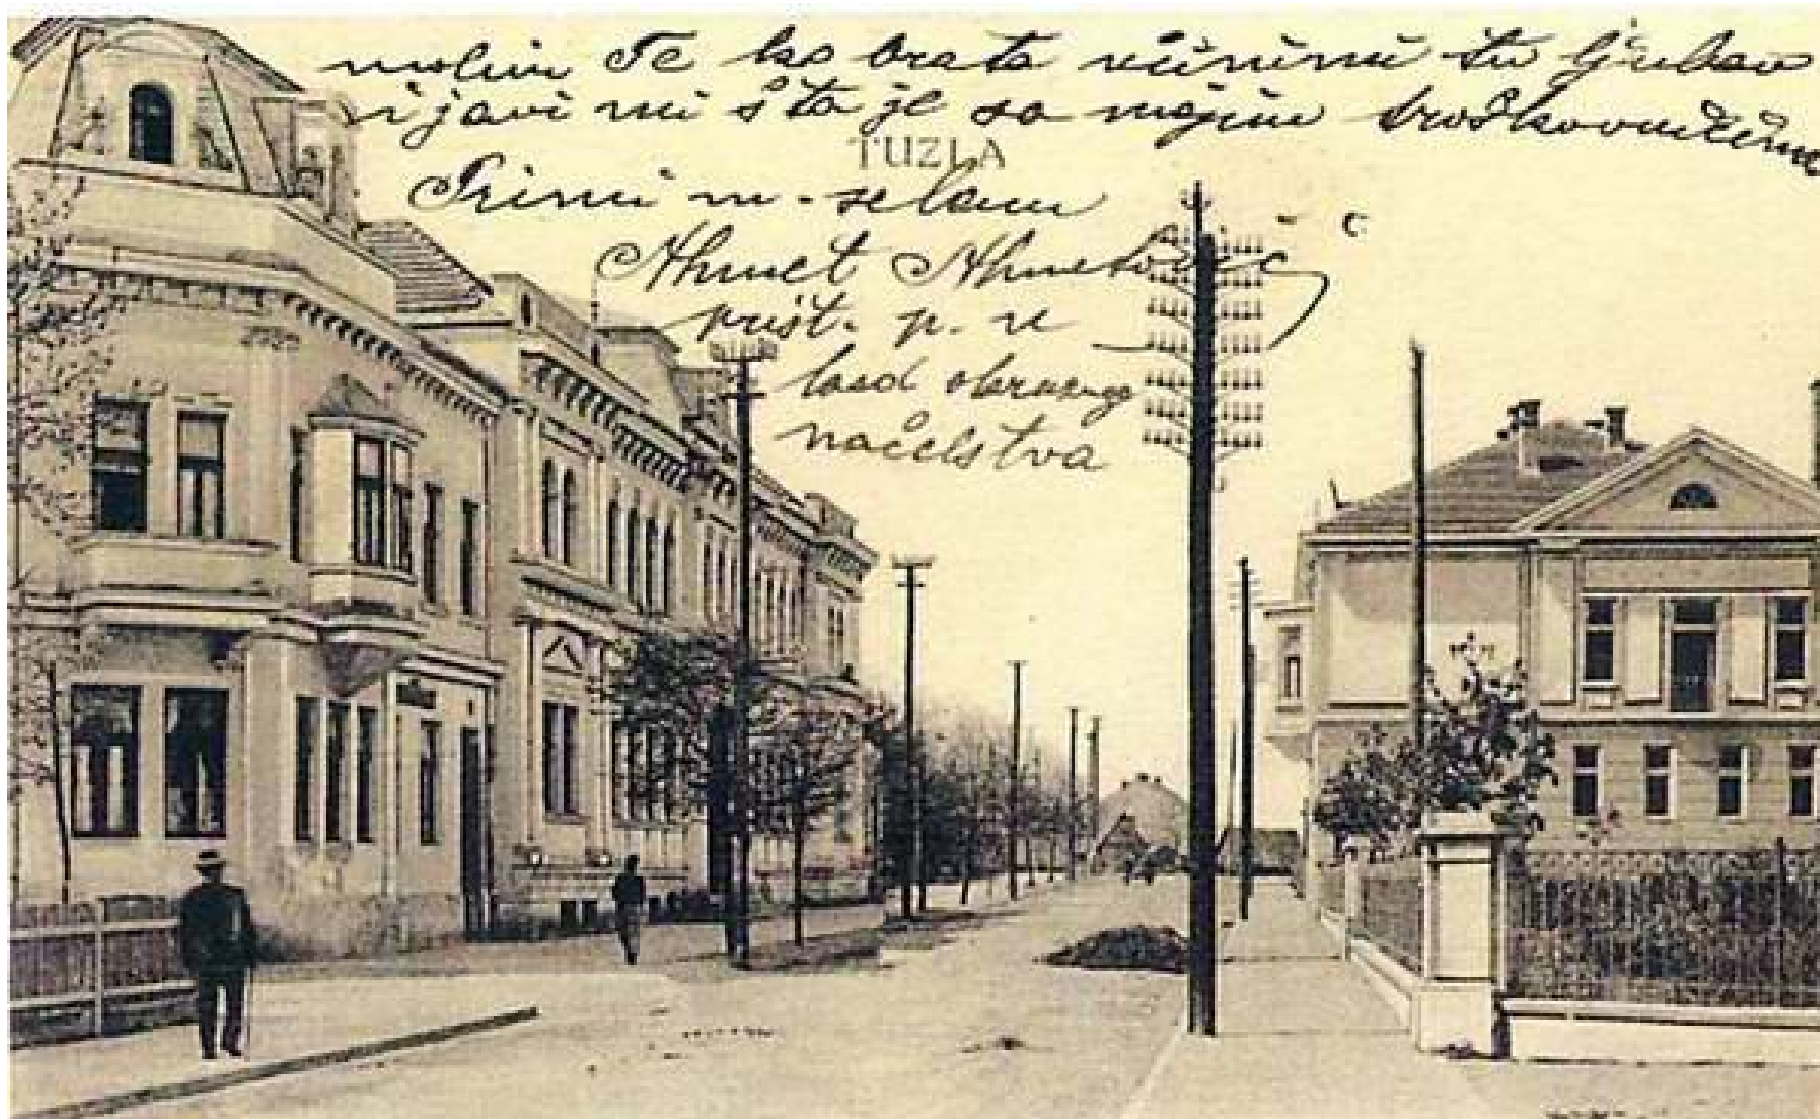 molim Te ko brata učini mi tu ljubav
i javi mi šta je sa mojim troškovničima
TUZLA
Primi m. selam
Ahmet Ahmetović
prist. p. u
kod okružnog
načelstva